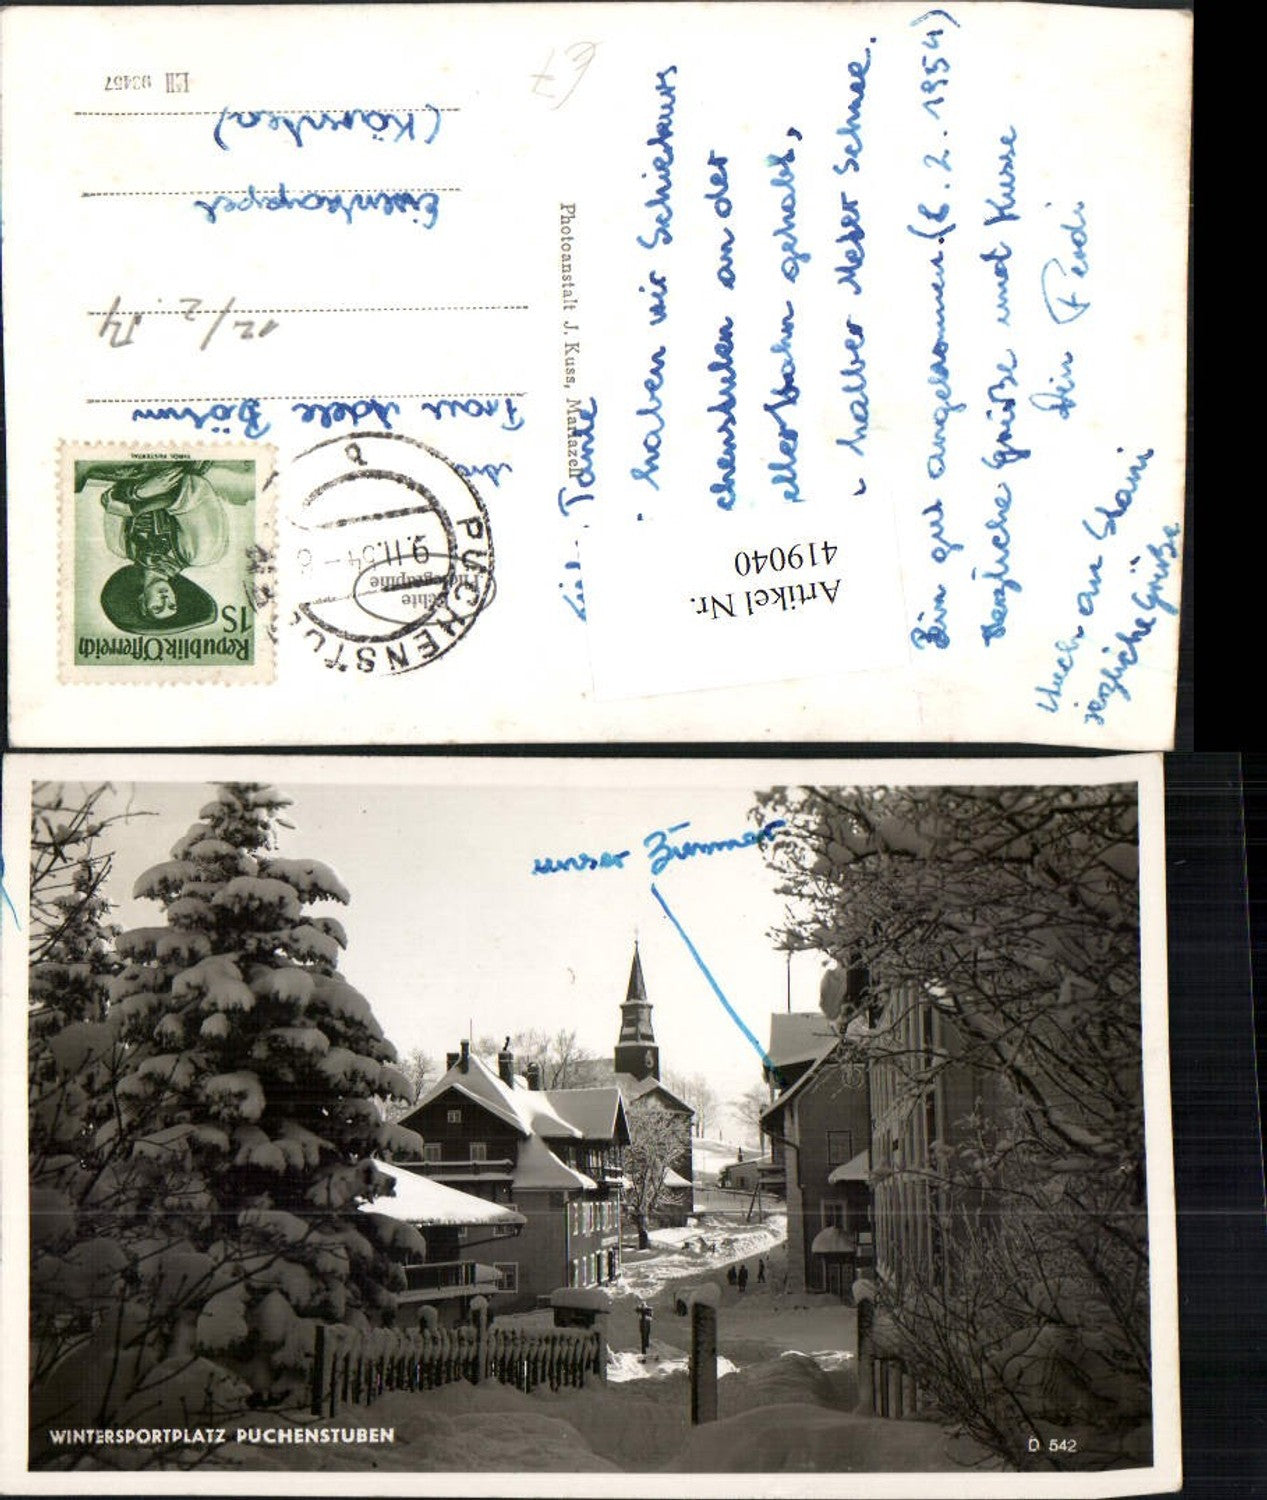 Lieb. Tante
haben wir Schiekurs
chenstuben an der
ellerbahn gehabt,
halber Meter Schnee.
Bin gut angekommen. (6. 2. 1954)
Herzliche Grüße und Küsse
Dein Ferdi
Auch an Stani
erzliche Grüße
Artikel Nr.
419040
Photoanstalt J. Kuss, Mariazell
Republik Österreich
1S
TIROL PUSTERTAL
PUCHENSTU
9.II.54-8
a
Echte
Photographie
Frau Adele Böhm
12/2. 54
Eisenkappel
(Kärnten)
93457
unser Zimmer
WINTERSPORTPLATZ PUCHENSTUBEN
D 542